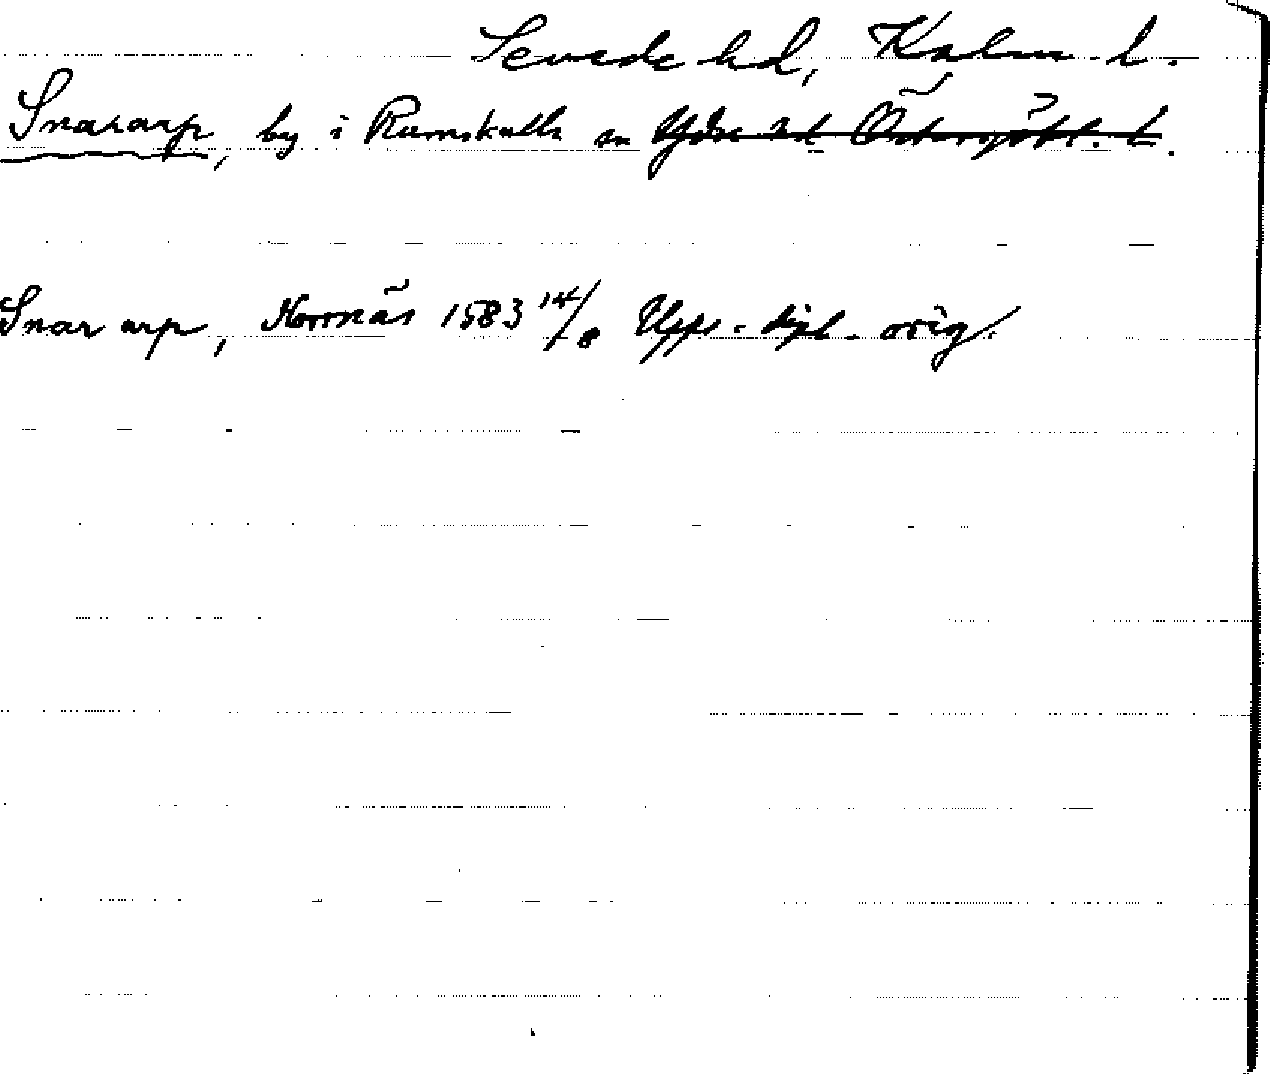 Sevede hd, Kalm. l.
Snararp, by i Rumskulla sn Ydre hd Östergötl. l.
Snar arp, Norrnäs 1583 14/8 Upps. dipl. orig.